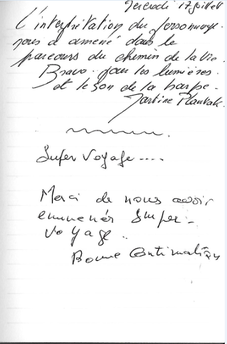 17 juillet
L'interprétation du personnage
nous a amené dans le
parcours du chemin de la vie.
Bravo pour les lumières
et le son de la harpe.
Super Voyage....
Merci de nous avoir
emmenés Super
Voyage..
Bonne Continuation